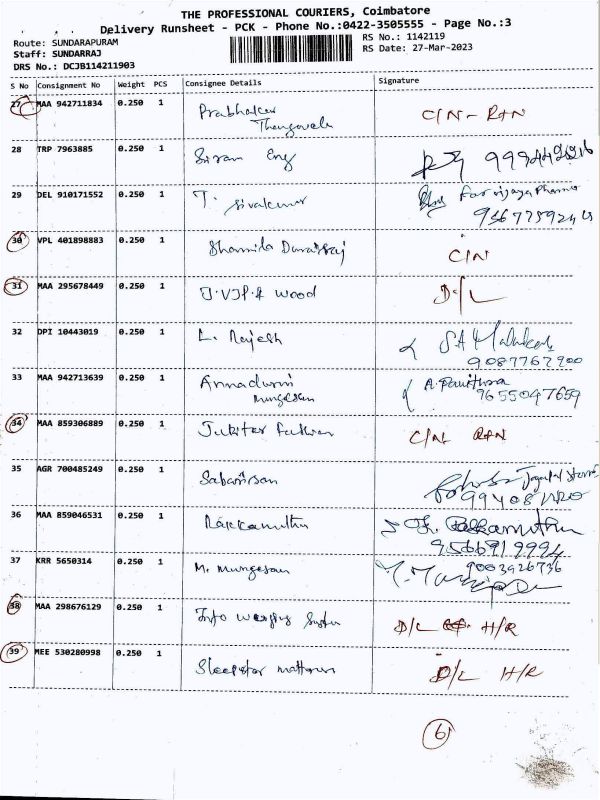 THE PROFESSIONAL COURIERS, Coimbatore
Delivery Runsheet - PCK - Phone No.:0422-3505555 - Page No.:3
Route: SUNDARAPURAM
RS No.: 1142119
Staff: SUNDARRAJ
RS Date: 27-Mar-2023
DRS No.: DCJB114211903
S No Consignment No Weight PCS Consignee Details Signature
27 MAA 942711834 0.250 1 Prabhakar C/N - R+N
Thangavelu
28 TRP 7963885 0.250 1 Siram Eng
29 DEL 910171552 0.250 1 T. Sivakumar For vijaya Pharma
30 VPL 401898883 0.250 1 Sharmila C/N
31 MAA 295678449 0.250 1 wood D/L
32 DPI 10443019 0.250 1 L. Rajesh
9087762900
33 MAA 942713639 0.250 1 Annadurai A. Pavithra
murugesan 9655047659
34 MAA 859306889 0.250 1 C/N R+N
35 AGR 700485249 0.250 1
36 MAA 859046531 0.250 1 Rakkamuthu
9566919994
37 KRR 5650314 0.250 1 M. Murugesan 9003926736
38 MAA 298676129 0.250 1 Info D/L H/R
39 MEE 530280998 0.250 1 Sleepstar D/L H/R
6